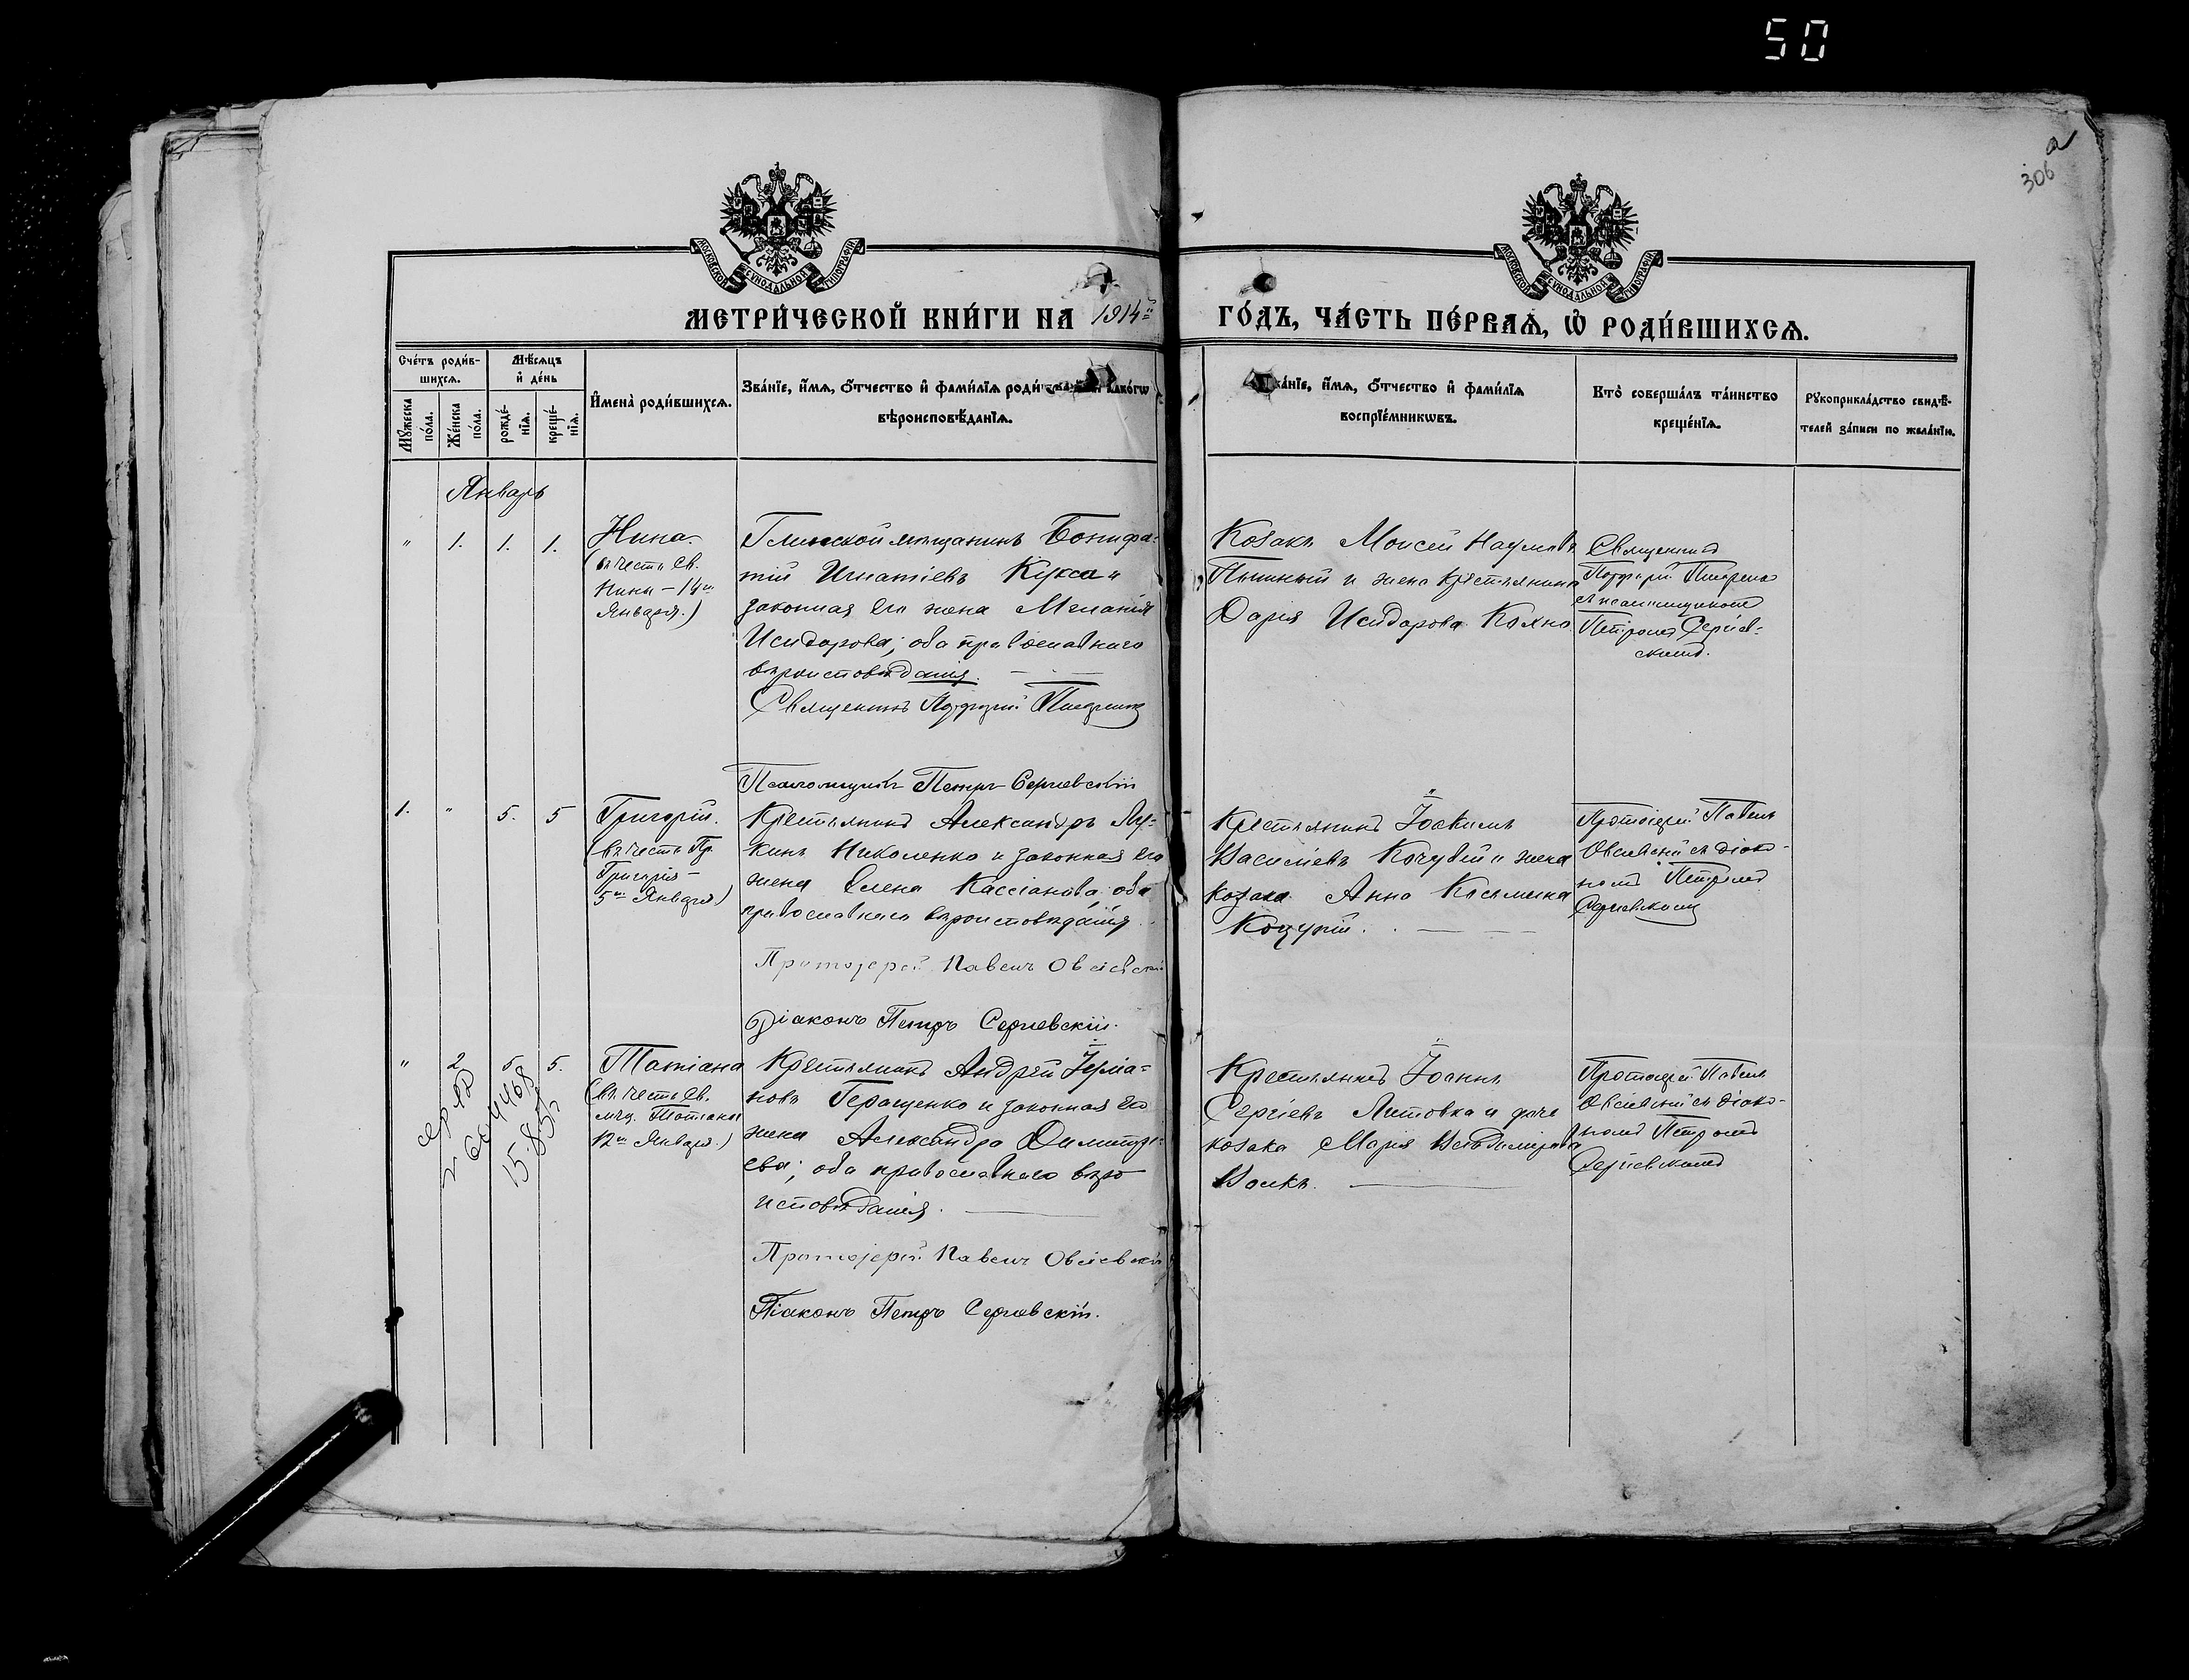 50
а
306
МОСКОВСКОЙ СУНОДАЛЬНОЙ ТИПОГРАФІИ
МОСКОВСКОЙ СУНОДАЛЬНОЙ ТИПОГРАФІИ
МЕТРИ́ЧЕСКОЙ КНИ́ГИ НА 1914й
ГО́ДЪ, ЧА́СТЬ ПЕ́РВАѦ, Ѡ҆ РОДИ́ВШИХСѦ.
Сче́тъ роди́в-
шихсѧ.
Мѣ́сѧцъ
и҆ де́нь
Мꙋ́жеска
по́ла.
Же́нска
по́ла.
рожде́-
нїѧ.
креще́-
нїѧ.
И҆мена̀ роди́вшихсѧ.
Зва́нїе, и҆́мѧ, ѻ҆́тчество и҆ фами́лїѧ роди́
вѣроисповѣ́данїѧ.
Зва́нїе, и҆́мѧ, ѻ҆́тчество и҆ фами́лїѧ
воспрїе́мникѡвъ.
Кто̀ соверша́лъ та́инство
креще́нїѧ.
Рꙋкоприкла́дство свидѣ́-
телей за́писи по жела́нїю.
Январь
" 1. 1. 1.
Нина.
(въ честь Св.
Нины – 14го
Января.)
мѣщанинъ Бонифа-
тій Игнатіевъ Кукса и
законная его жена Меланія
Исидорова; оба православнаго
вѣроисповѣданія.
Священникъ Порфирій
Псаломщикъ Петръ Сергіевскій
Козакъ Моисей Наумовъ
и жена крестьянина
Дарія Исидорова
Священникъ
Порфирій
съ псаломщикомъ
Петромъ Сергіев-
скимъ.
1. " 5. 5
Григорій.
(въ честь Пр.
Григорія –
5го Января)
Крестьянинъ Александръ Лу-
кинъ Николенко и законная его
жена Елена Кассіанова; оба
православнаго вѣроисповѣданія.
Протоіерей Павелъ Овсіевскій
Діаконъ Петръ Сергіевскій.
Крестьянинъ Іоакимъ
Василіевъ Кочубей и жена
козака Анна Косьмина
Протоіерей Павелъ
Овсіевскій съ діако-
номъ Петромъ
Сергіевскимъ
" 2 5 5.
Татіана
(въ честь Св.
мчц. Татіаны
12го Января.)
Крестьянинъ Андрей
новъ Геращенко и законная его
жена Александра Димитрі-
ева; оба православнаго вѣро-
исповѣданія.
Протоіерей Павелъ Овсіевскій
Діаконъ Петръ Сергіевскій.
Крестьянинъ Іоаннъ
Сергіевъ Литовка и дочь
козака Марія Владимірова
Волкъ.
Протоіерей Павелъ
Овсіевскій съ діако-
номъ Петромъ
Сергіевскимъ